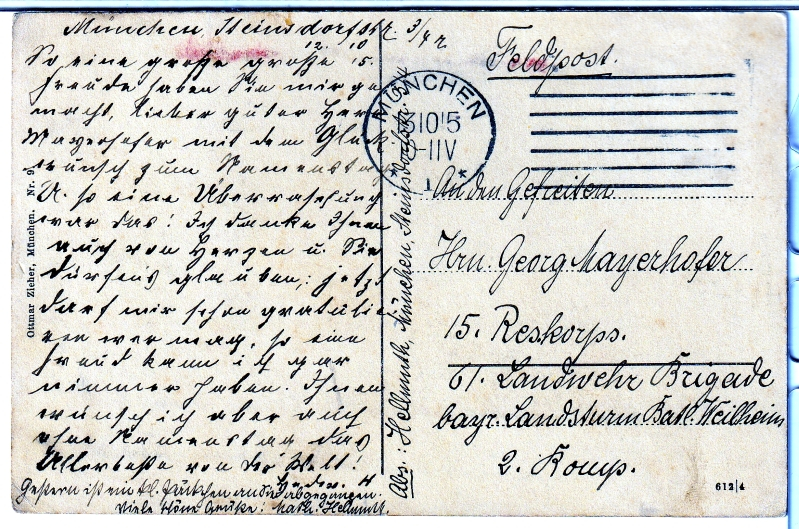 München, Steinsdorfstr. 3/4 r.
12. 10. 15.
So eine große große
Freude haben Sie mir ge
macht, lieber guter Herr
Mayerhofer mit dem Glück
wunsch zum Namenstag
U. so eine Überraschung
war das! Ich danke Ihnen
auch von Herzen u. Sie
dürfens glauben, jetzt
darf mir schon gratulie
ren wer mag, so eine
Freud kann ich gar
nimmer haben. Ihnen
wünsch ich aber auch
ohne Namenstag das
Allerbeste von der Welt!
Gestern ist ein kl. Päckchen an Sie abgegangen.
Viele schöne Grüße: Math. Hellmuth.
Ottmar Zieher, München. Nr. 9
Abs.: Hellmuth, München, Steinsdorfstr.
Feldpost.
MÜNCHEN
An den Gefreiten
Hrn. Georg Mayerhofer
15. Reskorps.
61. Landwehr Brigade
bayr. Landsturm Batl. Weilheim
2. Komp.
612|4